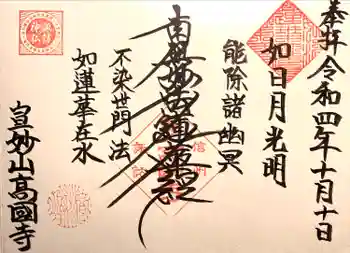 奉拝 令和四年十月十日
如日月光明
能除諸幽冥
南無妙法蓮華経
不染世間法
如蓮華在水
宣妙山高國寺